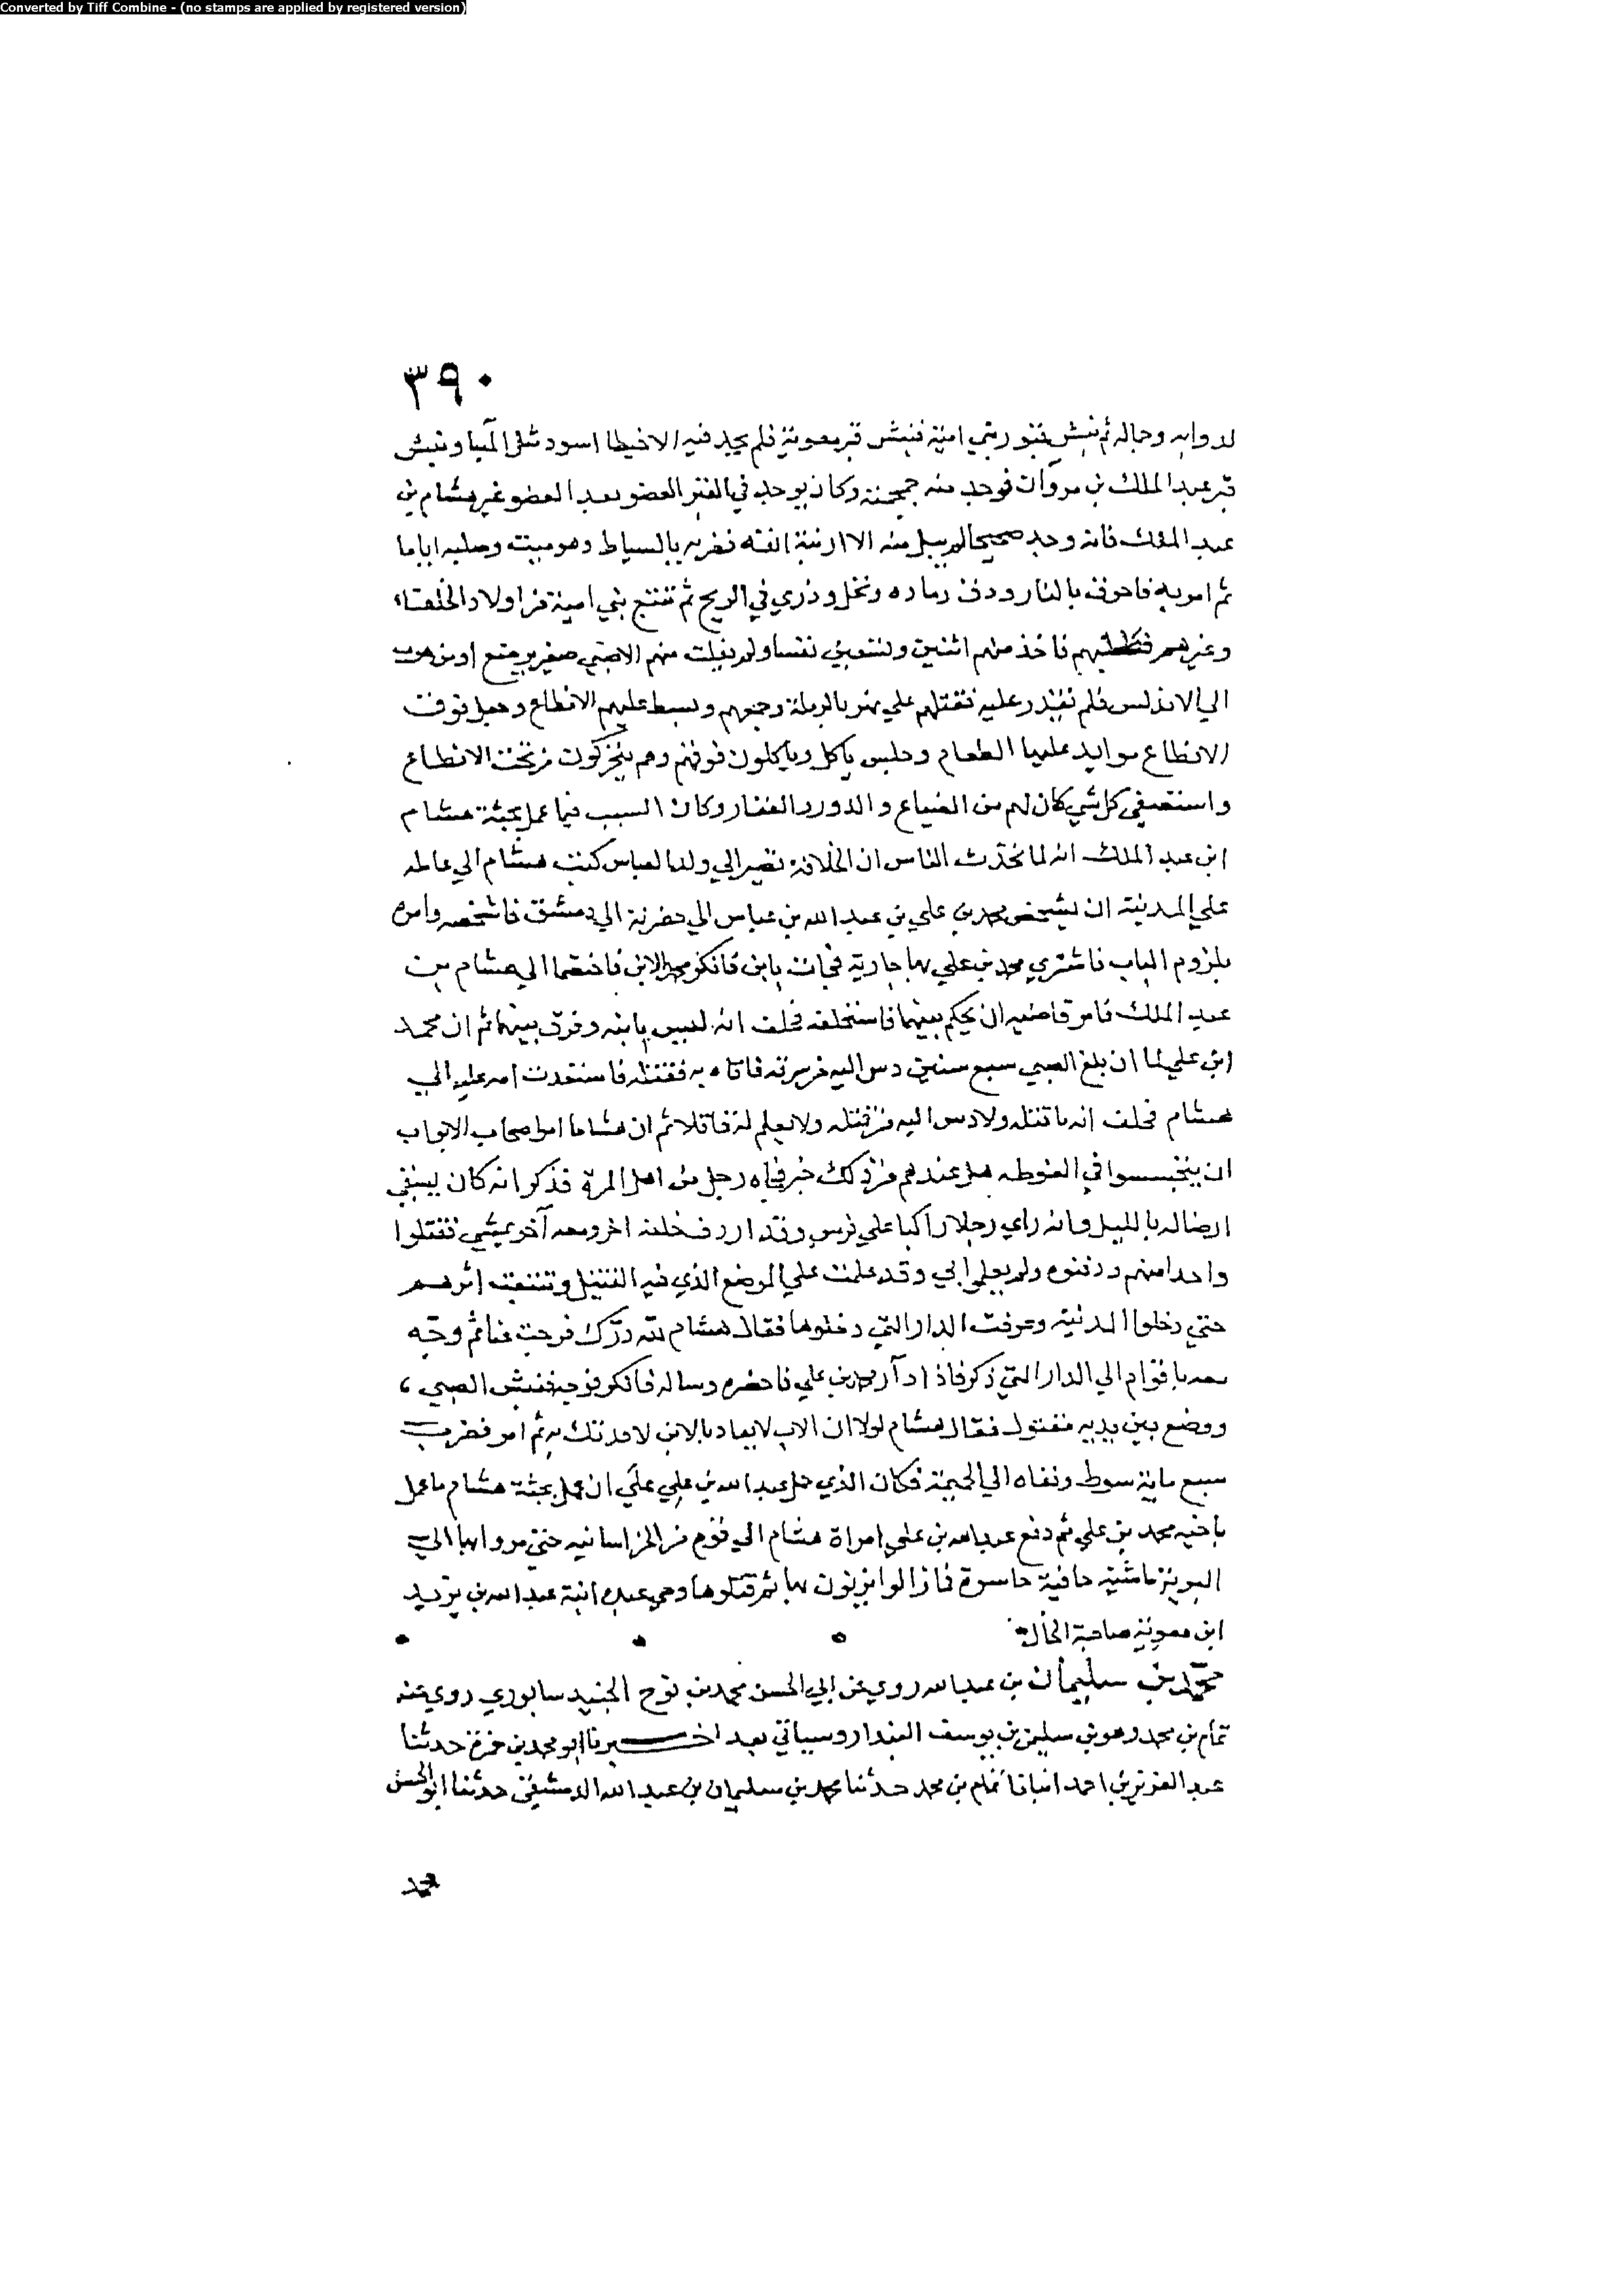 Converted by Tiff Combine - (no stamps are applied by registered version)
٣٩٠
لدوابه وجماله ثم نبش قبور بني امية فنبش قبر معوية فلم يجد فيه الا خيطا اسود مثل الهبا ونبش
قبر عبد الملك بن مروان فوجد منه جمجمة وكان يوجد في القبر العضو بعد العضو غير هشام بن
عبد الملك فانه وجد صحيحا لم يبل منه الا ارنبة انفه فضربه بالسياط وهو ميت وصلبه اياما
ثم امر به فاحرق بالنار ودق رماده ونخل وذري في الريح ثم تتبع بني امية من اولاد الخلفاء
وغيرهم فطلبهم فاخذ منهم اثنين وتسعين نفسا ولم يفلت منهم الا صبي صغير يرضع او من هرب
الي الاندلس فلم يقدر عليه فقتلهم علي نهر بالرملة وجمعهم وبسط عليهم الانطاع وجعل فوق
الانطاع موايد عليها الطعام وجلس ياكل وياكلون فوقهم وهم يتحركون من تحت الانطاع
واستصفي كل شي كان لهم من الضياع والدور والعقار وكان السبب فيما عمل بجثة هشام
ابن عبد الملك انه لما تحدث الناس ان الخلافة تصير الي ولد العباس كتب هشام الي عامله
علي المدينة ان يشخص محمد بن علي بن عبد الله بن عباس الي حضرته الي دمشق فاشخصه وامره
بلزوم الباب فاشتري محمد بن علي بها جارية فجات بابن فانكر محمد الابن فاختصما الي هشام بن
عبد الملك فامر قاضيه ان يحكم بينهما فاستحلفه فحلف انه ليس بابنه وفرق بينهما ثم ان محمد
ابن علي لما ان بلغ الصبي سبع سنين دس اليه من سرقه فاتاه به فقتله فاستعدت امه عليه الي
هشام فحلف انه ما قتله ولا دس اليه من قتله ولا يعلم له قاتلا ثم ان هشاما امر اصحاب الابواب
ان يتجسسوا في الغوطه هل عندهم من ذلك خبر فجاه رجل من اهل المزة فذكر انه كان يسقي
ارضا له بالليل وانه راي رجلا راكبا علي فرس وقد اردف خلفه اخر ومعه آخر يمشي فقتلوا
واحدا منهم ودفنوه ولم يعلموا بي وقد علمت علي الموضع الذي فيه القتيل وتتبعت اثرهم
حتي دخلوا المدينة وعرفت الدار التي دخلوها فقال هشام لله درّك فرجت عنا ثم وجّه
معه باقوام الي الدار التي ذكر فاذا دار محمد بن علي فاحضره وساله فانكر فوجه فنبش الصبي
ووضع بين يديه مقتول فقال هشام لولا ان الاب لا يقاد بالابن لاقدتك به ثم امر فضرب
سبع ماية سوط ونفاه الي الحميمة فكان الذي حمل عبد الله بن علي علي ان عمل بجثة هشام ما عمل
باخيه محمد بن علي ثم دفع عبد الله بن علي امراة هشام الي قوم من الخراسانيه حتي مروا بها الي
البرية ماشية حافية حاسرة فما زالوا يزنون بها ثم قتلوها وهي عبدة ابنة عبد الله بن يزيد
ابن معوية صاحبة الخال
محمّد بن سليمان بن عبد الله روي عن ابي الحسن محمد بن نوح الجنديسابوري روي عنه
تمام بن محمد وهو بن سليمن بن يوسف البندار وسياتي بعد اخبرنا ابو محمد بن حمزة حدثنا
عبد العزيز بن احمد انبانا تمام بن محمد حدثنا محمد بن سليمان بن عبد الله الدمشقي حدثنا ابو الحسن
محمد